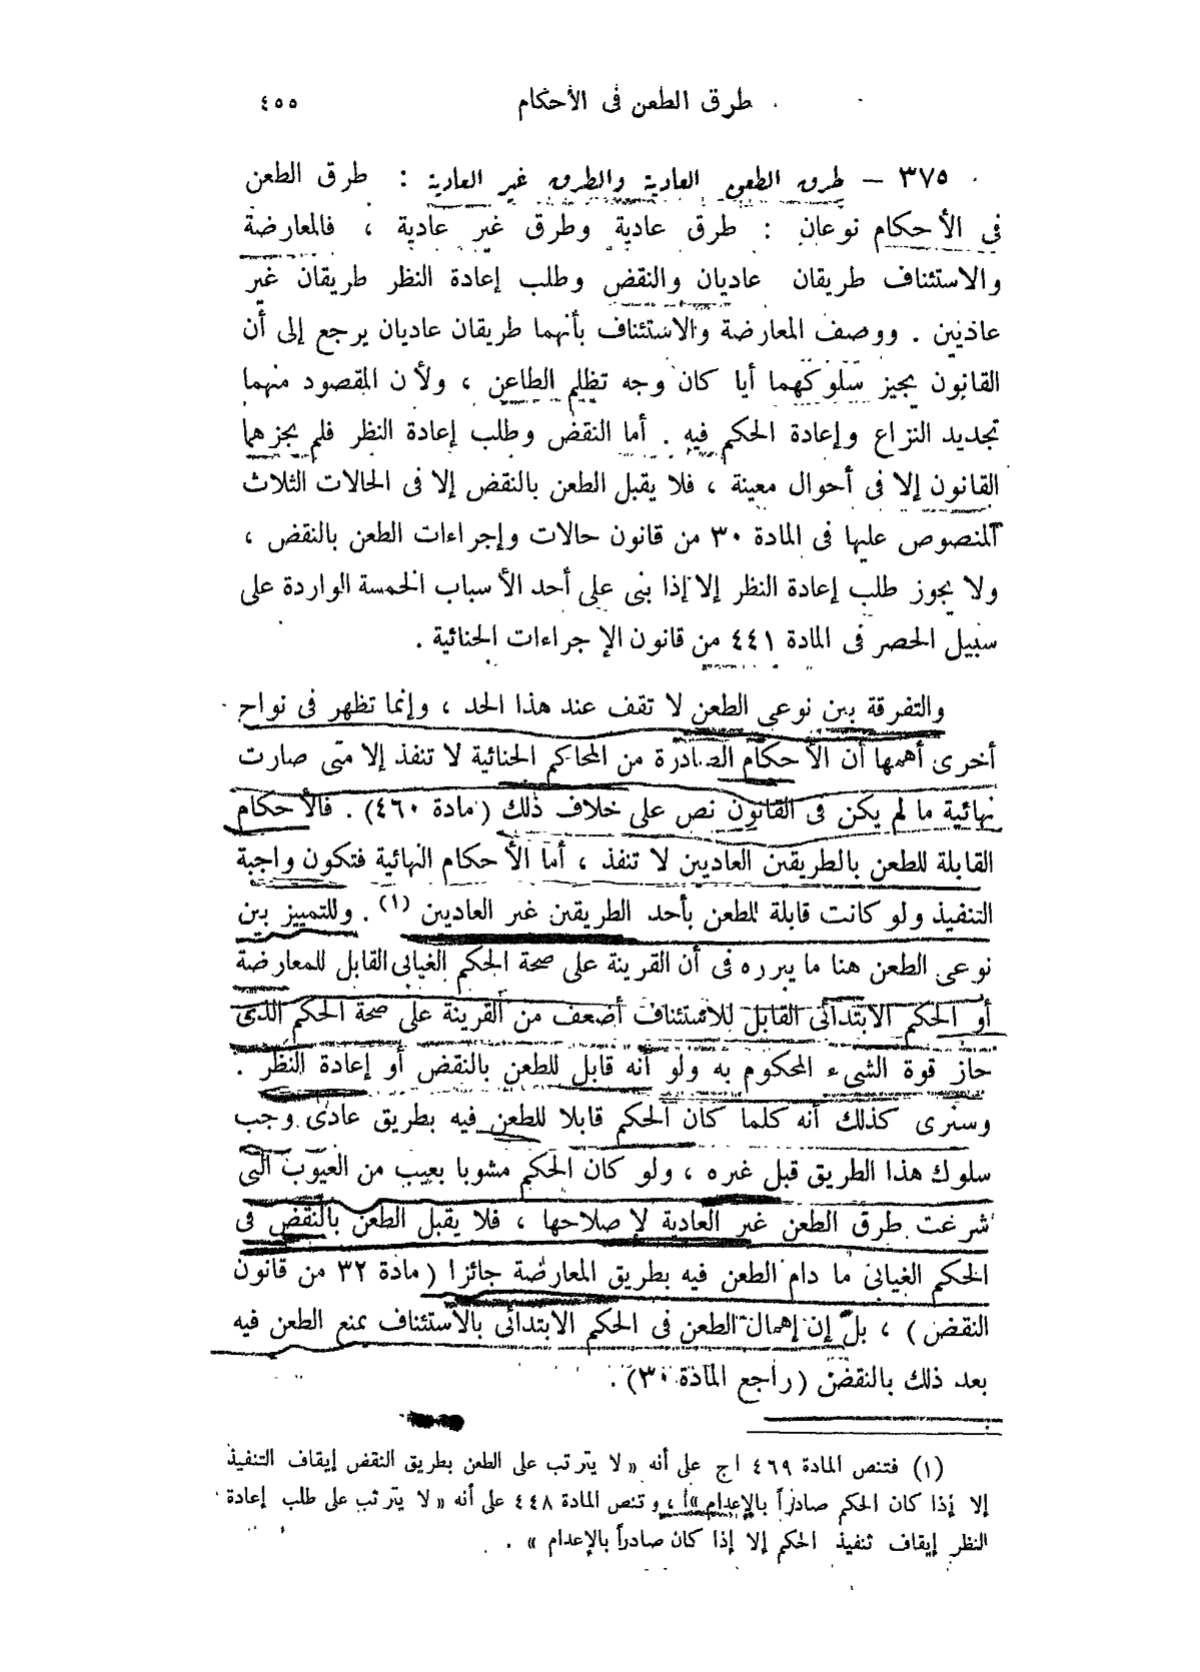 طرق الطعن فى الأحكام ٤٥٥
٣٧٥ – طرق الطعن العادية والطرق غير العادية : طرق الطعن
فى الأحكام نوعان : طرق عادية وطرق غير عادية ، فالمعارضة
والاستئناف طريقان عاديان والنقض وطلب إعادة النظر طريقان غير
عاديين . ووصف المعارضة والاستئناف بأنهما طريقان عاديان يرجع إلى أن
القانون يجيز سلوكهما أيا كان وجه تظلم الطاعن ، ولأن المقصود منهما
تجديد النزاع وإعادة الحكم فيه . أما النقض وطلب إعادة النظر فلم يجزهما
القانون إلا فى أحوال معينة ، فلا يقبل الطعن بالنقض إلا فى الحالات الثلاث
المنصوص عليها فى المادة ٣٠ من قانون حالات وإجراءات الطعن بالنقض ،
ولا يجوز طلب إعادة النظر إلا إذا بنى على أحد الأسباب الخمسة الواردة على
سبيل الحصر فى المادة ٤٤١ من قانون الإجراءات الجنائية .
والتفرقة بين نوعى الطعن لا تقف عند هذا الحد ، وإنما تظهر فى نواح
أخرى أهمها أن الأحكام الصادرة من المحاكم الجنائية لا تنفذ إلا متى صارت
نهائية ما لم يكن فى القانون نص على خلاف ذلك (مادة ٤٦٠) . فالأحكام
القابلة للطعن بالطريقين العاديين لا تنفذ ، أما الأحكام النهائية فتكون واجبة
التنفيذ ولو كانت قابلة للطعن بأحد الطريقين غير العاديين (١) . وللتمييز بين
نوعى الطعن هنا ما يبرره فى أن القرينة على صحة الحكم الغيابى القابل للمعارضة
أو الحكم الابتدائى القابل للاستئناف أضعف من القرينة على صحة الحكم الذى
حاز قوة الشىء المحكوم به ولو أنه قابل للطعن بالنقض أو إعادة النظر .
وسنرى كذلك أنه كلما كان الحكم قابلا للطعن فيه بطريق عادى وجب
سلوك هذا الطريق قبل غيره ، ولو كان الحكم مشوبا بعيب من العيوب التى
شرعت طرق الطعن غير العادية لإصلاحها ، فلا يقبل الطعن بالنقض فى
الحكم الغيابى ما دام الطعن فيه بطريق المعارضة جائزا (مادة ٣٢ من قانون
النقض) ، بل إن إهمال الطعن فى الحكم الابتدائى بالاستئناف يمنع الطعن فيه
بعد ذلك بالنقض (راجع المادة ٣٠) .
(١) فتنص المادة ٤٦٩ اج على أنه « لا يترتب على الطعن بطريق النقض إيقاف التنفيذ
إلا إذا كان الحكم صادراً بالإعدام » ، وتنص المادة ٤٤٨ على أنه « لا يترتب على طلب إعادة
النظر إيقاف تنفيذ الحكم إلا إذا كان صادراً بالإعدام » .